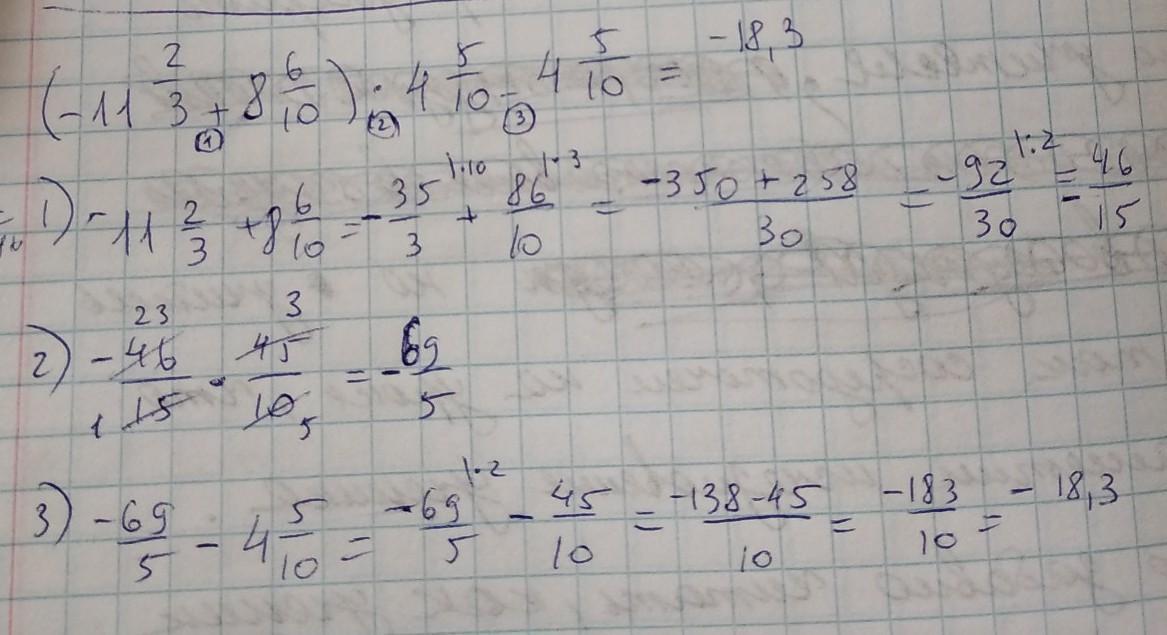 (-11 2/3 + 8 6/10) · 4 5/10 - 4 5/10 = -18,3
① ② ③
1) -11 2/3 + 8 6/10 = -35/3 |·10 + 86/10 |·3 = -350+258/30 = -92/30 |:2 = -46/15
2) -46/15 · 45/10 = -69/5
23 3
1 5
3) -69/5 - 4 5/10 = -69/5 |·2 - 45/10 = -138-45/10 = -183/10 = -18,3